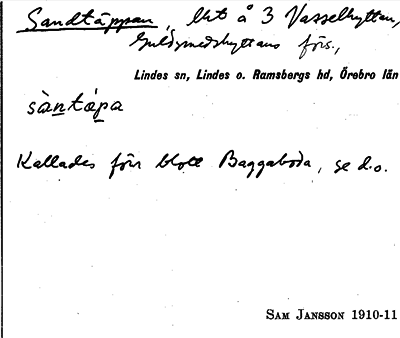 Sandtäppan, lht å 3 Vasselhyttan,
Guldsmedshyttans förs.,
Lindes sn, Lindes o. Ramsbergs hd, Örebro län
sàntápa
Kallades förr blott Baggaboda, se d.o.
SAM JANSSON 1910-11